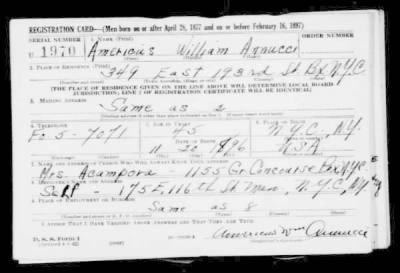 REGISTRATION CARD—(Men born on or after April 28, 1877 and on or before February 16, 1897)
SERIAL NUMBER 1. NAME (Print) ORDER NUMBER
U 1970 Americus William Annucci
(First) (Middle) (Last)
2. PLACE OF RESIDENCE (Print)
349 East 193rd St Bx N.Y.C.
(Number and street) (Town, township, village, or city) (County) (State)
[THE PLACE OF RESIDENCE GIVEN ON THE LINE ABOVE WILL DETERMINE LOCAL BOARD
JURISDICTION; LINE 2 OF REGISTRATION CERTIFICATE WILL BE IDENTICAL]
3. MAILING ADDRESS
Same as 2
4. TELEPHONE 5. AGE IN YEARS 6. PLACE OF BIRTH
Fo 5-7071 45 N.Y.C., N.Y.
DATE OF BIRTH
11 20 1896 USA
7. NAME AND ADDRESS OF PERSON WHO WILL ALWAYS KNOW YOUR ADDRESS
Mrs. Acampora - 1155 Gr. Concourse Bx N.Y.C.
8. EMPLOYER'S NAME AND ADDRESS
Self - 175 E, 116th St Man, N.Y.C, N.Y.
9. PLACE OF EMPLOYMENT OR BUSINESS
Same as 8
(Number and street or R. F. D. number) (Town) (County) (State)
I AFFIRM THAT I HAVE VERIFIED ABOVE ANSWERS AND THAT THEY ARE TRUE.
D. S. S. Form 1
Americus Wm Annucci